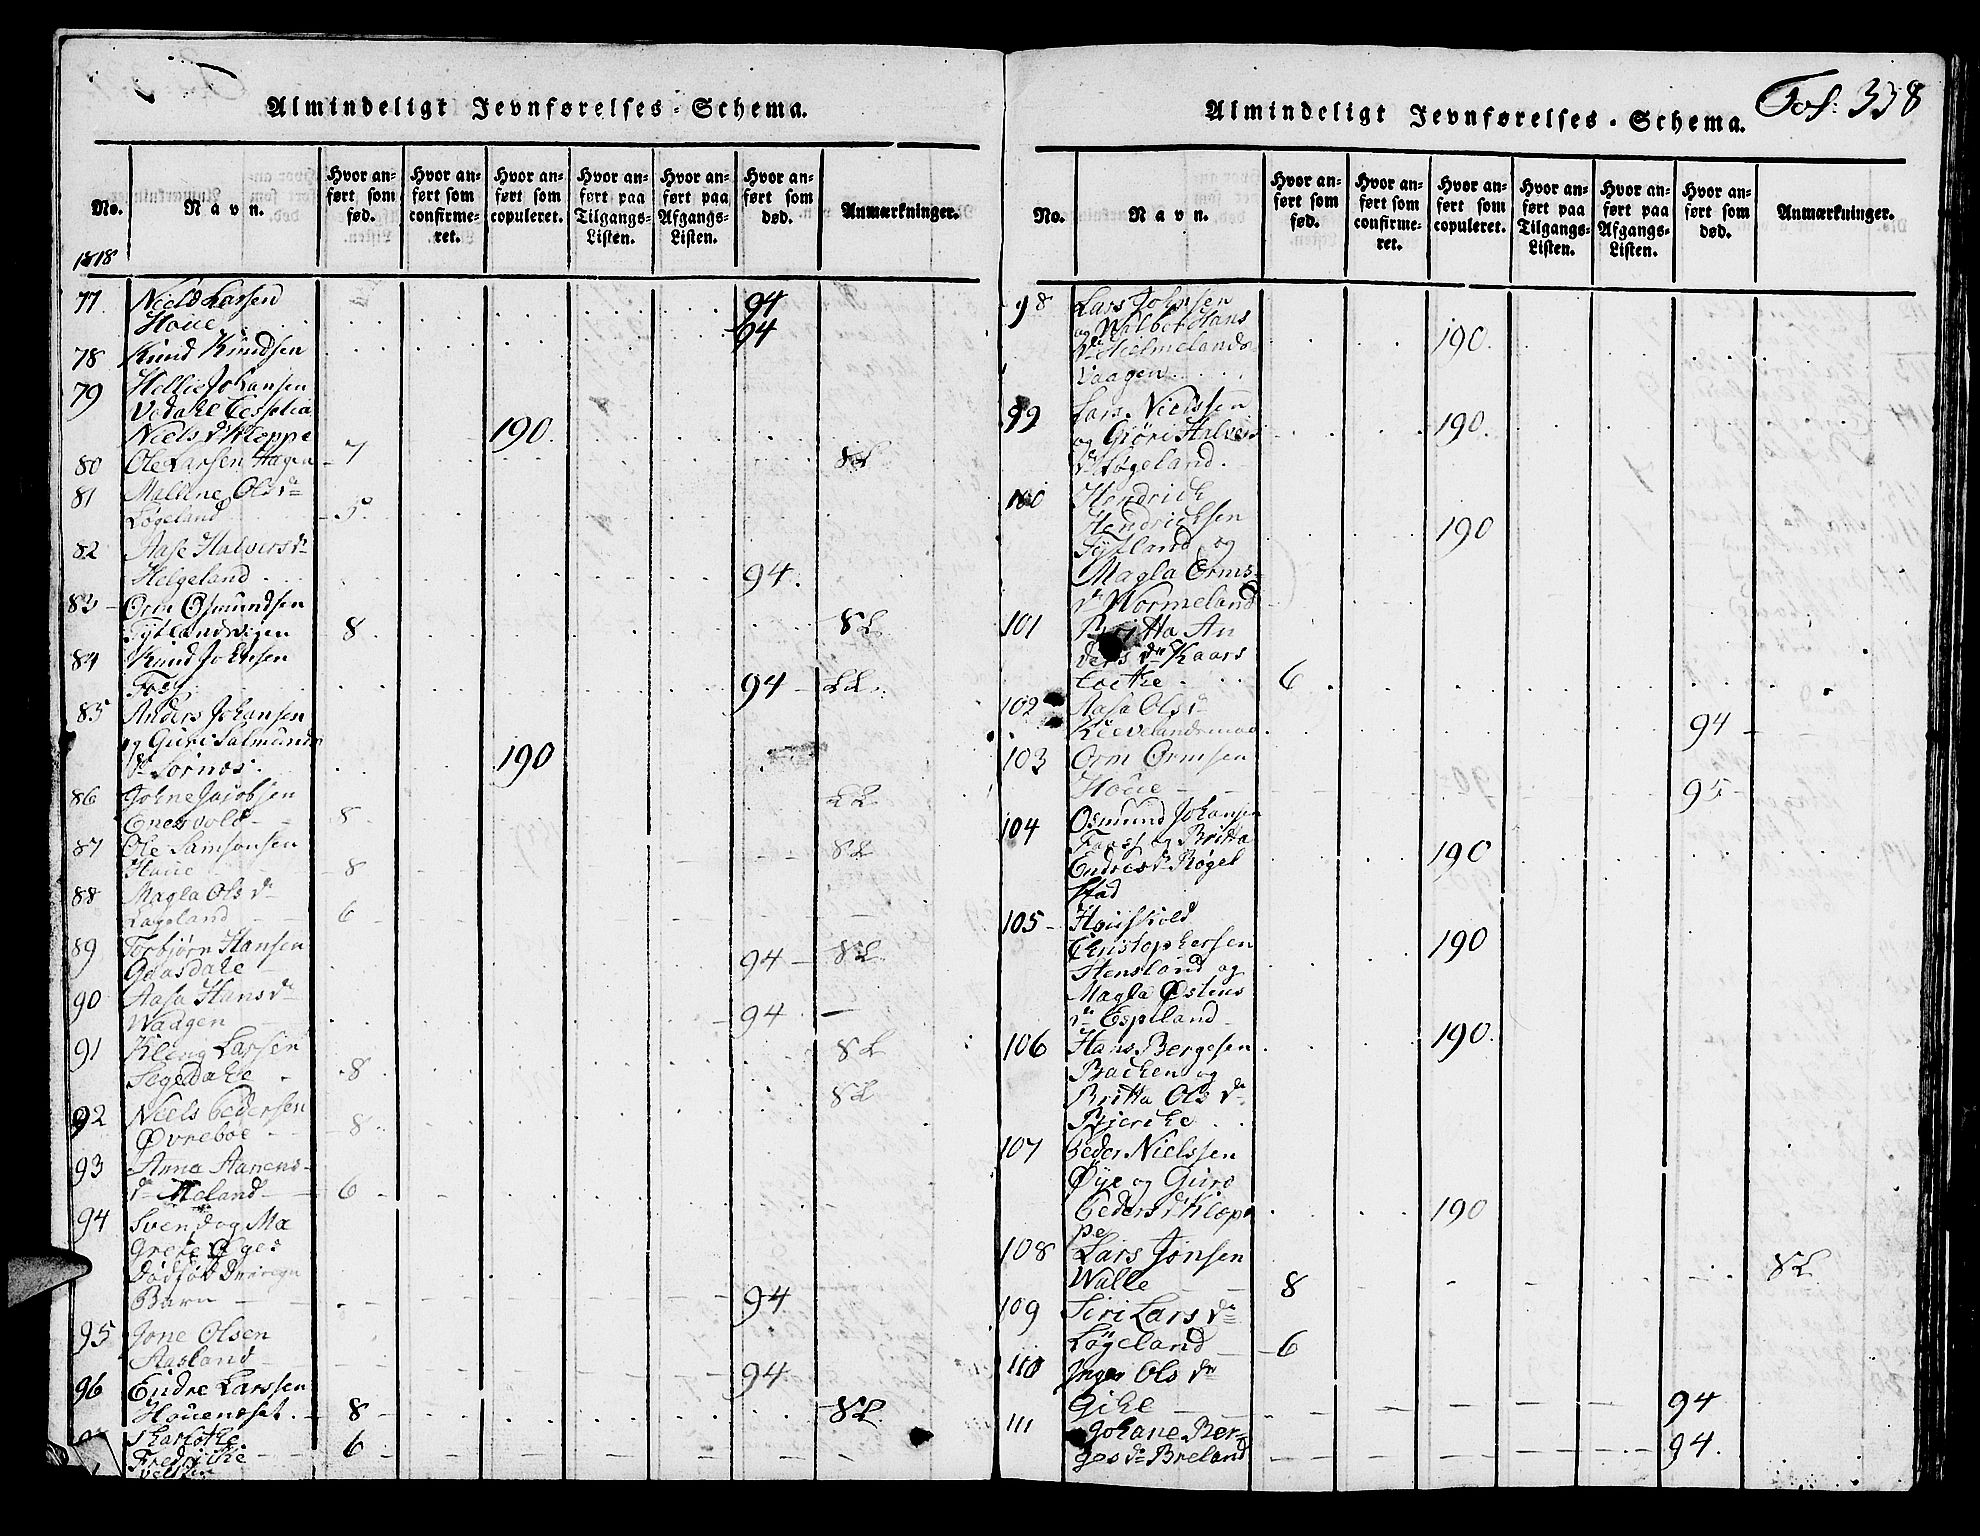 Almindeligt Jevnførelses-Schema.
No. Navn. Hvor anført som fød. Hvor anført som confirmeret. Hvor anført som copuleret. Hvor anført paa Tilgangs-Listen. Hvor anført paa Afgangs-Listen. Hvor anført som død. Anmærkninger.
1818
77. Niels Larsen 94
Houe
78 Knud Knudsen 94
79 Hellie Johansen
Vodahl
Niels dr Kleppe 190.
80 Ole Larsen Hagen 7 8L
81 Mallene Ols dr
Løgeland 5.
82 Aase Halvors dr
Helgeland 94.
83 Orm Osmundsen
Tytlandsvigen 8. 8L
84 Knud Johnsen
Foss 94 LL.
85 Anders Johansen
og Guri Salmunds
dr Sørnes. 190
86 Johne Jacobsen LL.
Enesvold 8.
87 Ole Samsonsen 8L
Houe 8
88 Magla Ols dr
Løgeland 6
89 Torbjørn Hansen
Gaasdahl 94 8L
90 Aasa Hans dr
Waagen 94
91 Kleng Larsen 8L
Segedahl 8.
92 Niels Pedersen 8L
Øvreboe 8.
93 Anna Aanens
dr Meland 6
94 Svend og Ma
Grete
Dødfødt
Barn 94
95 Jone Olsen
Aasland 94
96 Endre Larssen
Houensset. 8 8L
Sharlothe
Fredrikke 6
Almindeligt Jevnførelses-Schema. Fol: 338
No. Navn. Hvor anført som fød. Hvor anført som confirmeret. Hvor anført som copuleret. Hvor anført paa Tilgangs-Listen. Hvor anført paa Afgangs-Listen. Hvor anført som død. Anmærkninger.
98 Lars Johnsen
og Walbor Hans 190.
dr Hielmelands
Vaagen
99 Lars Nielssen
og Giøri Halvors 190.
dr Løgeland.
100 Hendrich
Hendrichsen 190
Tytland og
Magla Orms
dr Wormeland
101 Britta An
ders dr Kaars
6
102 Aasa Ols dr
94
103 Orm Ormsen
Houe 95
104 Osmund Johansen
Foss og Britta
Endres dr Røgel 190
stad
105 Houskold
Christophersen 190
Stensland og
Magla Østens
dr Espeland
106 Hans Bergesen 190.
Backen og
Britta Ols dr
Bjercke
107 Peder Nielssen
Øye og Guro
Peders dr Klep 190
pe
108 Lars Jonsen 8L
Walle 8
109 Siri Lars dr
Løgeland 6
110 Inger Ols dr
Gihl 94
111 Johane Ber
ges dr Breland 94.